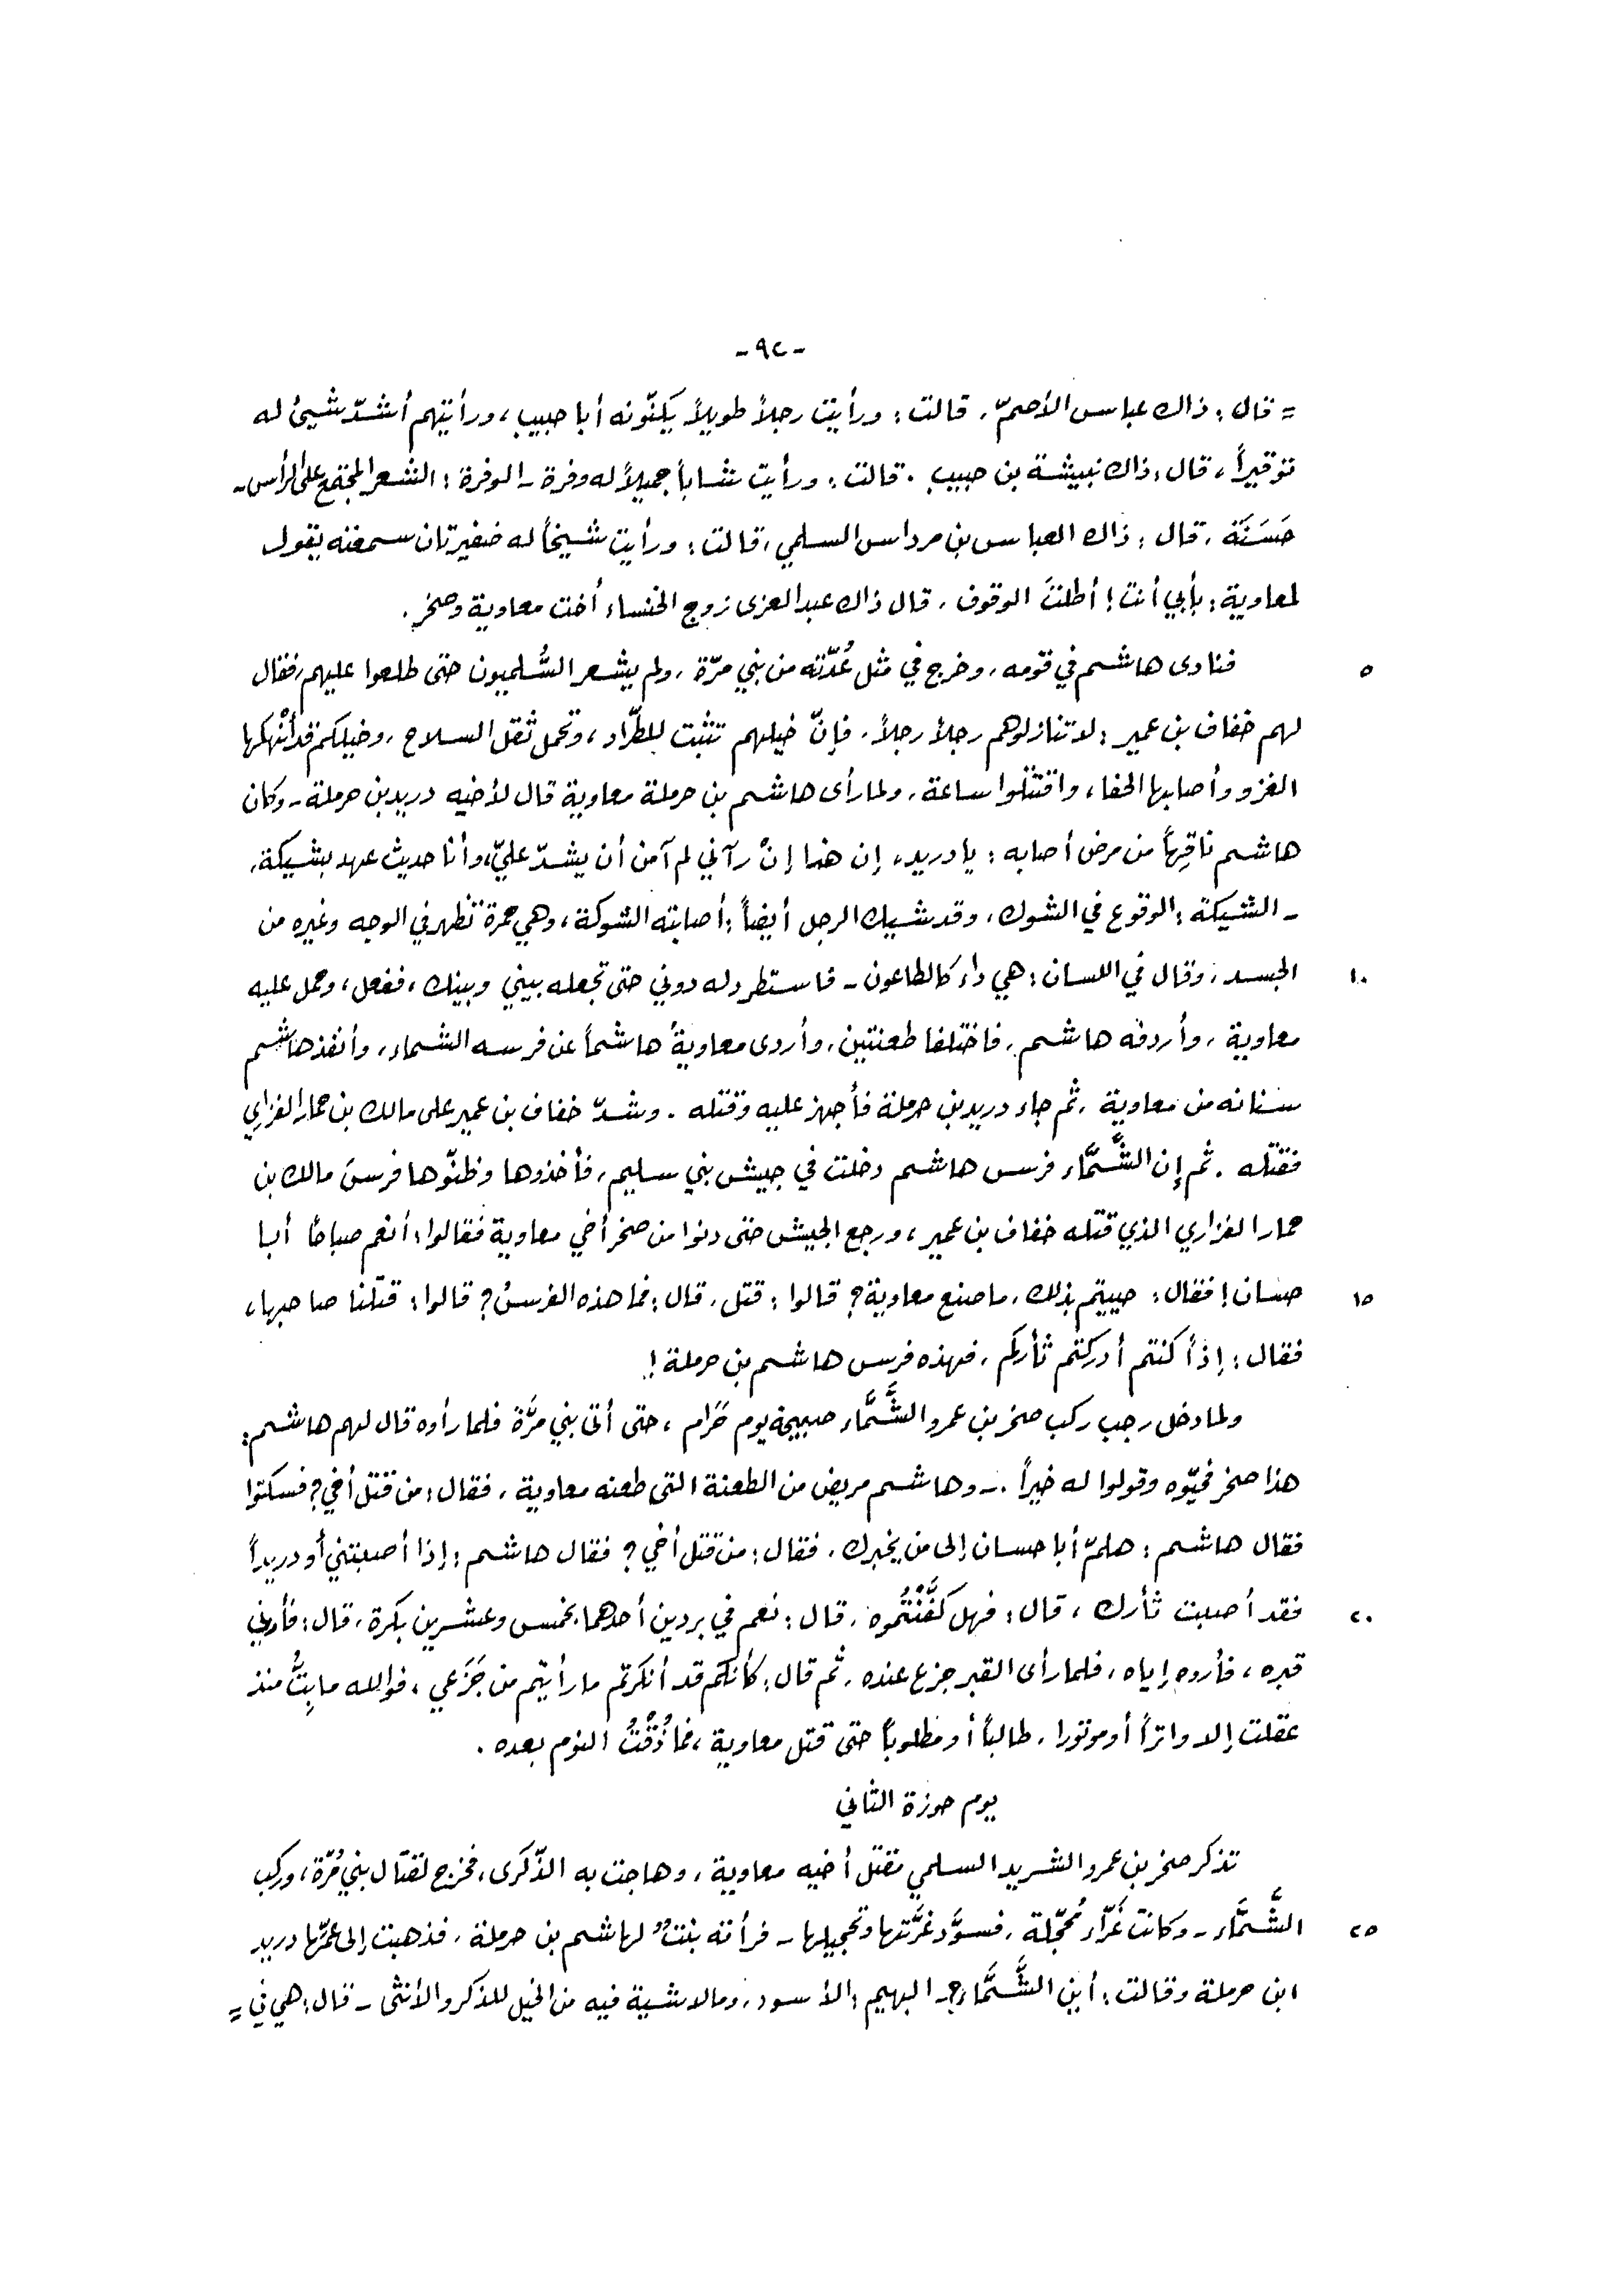 -٩٢-
= قال: ذاك عباس الأصمّ، قالت: ورأيت رجلاً طويلاً يكنّونه أبا حبيب، ورأيتهم أشدّ شيئ له
توقيراً، قال: ذاك نبيشة بن حبيب. قالت: ورأيت شاباً جميلاً له وفرة - الوفرة: الشعر المجتمع على الرأس-
حَسَنَة، قال: ذاك العباس بن مرداس السلمي، قالت: ورأيت شيخاً له ضفيرتان سمعته يقول
لمعاوية: بأبي أنت! أطلتَ الوقوف، قال ذاك عبد العزى زوج الخنساء أخت معاوية وصخر.
٥ فنادى هاشم في قومه، وخرج في مثل عُدّته من بني مرّة، ولم يشعر السُّلميون حتى طلعوا عليهم، فقال
لهم خفاف بن عمير: لا تنازلوهم رجلاً رجلاً، فإنّ خيلهم تثبت للطّراد، وتحمل ثقل السلاح، وخيلكم قد أنْهكها
الغزو وأصابها الحفا، واقتتلوا ساعة، ولما رأى هاشم بن حرملة معاوية قال لأخيه دريد بن حرملة - وكان
هاشم ناقِهاً من مرض أصابه: يا دريد، إن هذا إنْ رآني لم آمن أن يشدّ عليّ، وأنا حديث عهد بشيكة،
- الشيكة: الوقوع في الشوك، وقد شيك الرجل أيضاً: أصابته الشوكة، وهي حمرة تظهر في الوجه وغيره من
١٠ الجسد، وقال في اللسان: هي داء كالطاعون - فاستطرد له دوني حتى تجعله بيني وبينك، ففعل، وحمل عليه
معاوية، وأردفه هاشم، فاختلفا طعنتين، وأردى معاويةُ هاشماً عن فرسه الشماء، وأنفذ هاشم
سنانه من معاوية، ثم جاء دريد بن حرملة فأجهز عليه وقتله. وشدّ خفاف بن عمير على مالك بن حمار الفزاري
فقتله. ثم إن الشَّمَّاء فرس هاشم دخلت في جيش بني سليم، فأخذوها وظنّوها فرسَ مالك بن
حمار الفزاري الذي قتله خفاف بن عمير، ورجع الجيش حتى دنوا من صخر أخي معاوية فقالوا: أنعم صباحاً أبا
١٥ حسان! فقال: حييتم بذلك، ما صنع معاوية؟ قالوا: قتل، قال: فما هذه الفرسُ؟ قالوا: قتلنا صاحبها،
فقال: إذاً كنتم أدركتم ثأركم، فهذه فرس هاشم بن حرملة!.
ولما دخل رجب ركب صخر بن عمرو الشَّمَّاء صبيحة يوم حَرام، حتى أتى بني مرَّة فلما رأوه قال لهم هاشم:
هذا صخر فحيّوه وقولوا له خيراً. - وهاشم مريض من الطعنة التي طعنه معاوية، فقال: من قتل أخي؟ فسكتوا
فقال هاشم: هلمّ أبا حسان إلى من يخبرك، فقال: من قتل أخي؟ فقال هاشم: إذا أصبتني أو دريداً
٢٠ فقد أصبت ثأرك، قال: فهل كفَّنْتُموه، قال: نعم في بردين أحدهما بخمس وعشرين بكرة، قال: فأروني
قبره، فأروه إياه، فلما رأى القبر جزع عنده، ثم قال: كأنكم قد أنكرتم ما رأيتم من جَزَعي، فوالله ما بِتُّ منذ
عقلت إلا واتراً أو موتورا، طالباً أو مطلوباً حتى قتل معاوية، فما ذُقْتُ النوم بعده.
يوم حوزة الثاني
تذكر صخر بن عمرو الشريد السلمي مقتل أخيه معاوية، وهاجت به الذّكرى، فخرج لقتال بني مُرّة، وركب
٢٥ الشَّمَّاء - وكانت غَرّاء مُحجّلة، فسوَّد غرَّتها وتحجيلها - فرأته بنتٌ لهاشم بن حرملة، فذهبت إلى عمّها دريد
ابن حرملة وقالت: أين الشَّمَّاء؟ - البهيم: الأسود، وما لا شية فيه من الخيل للذكر والأنثى - قال: هي في =